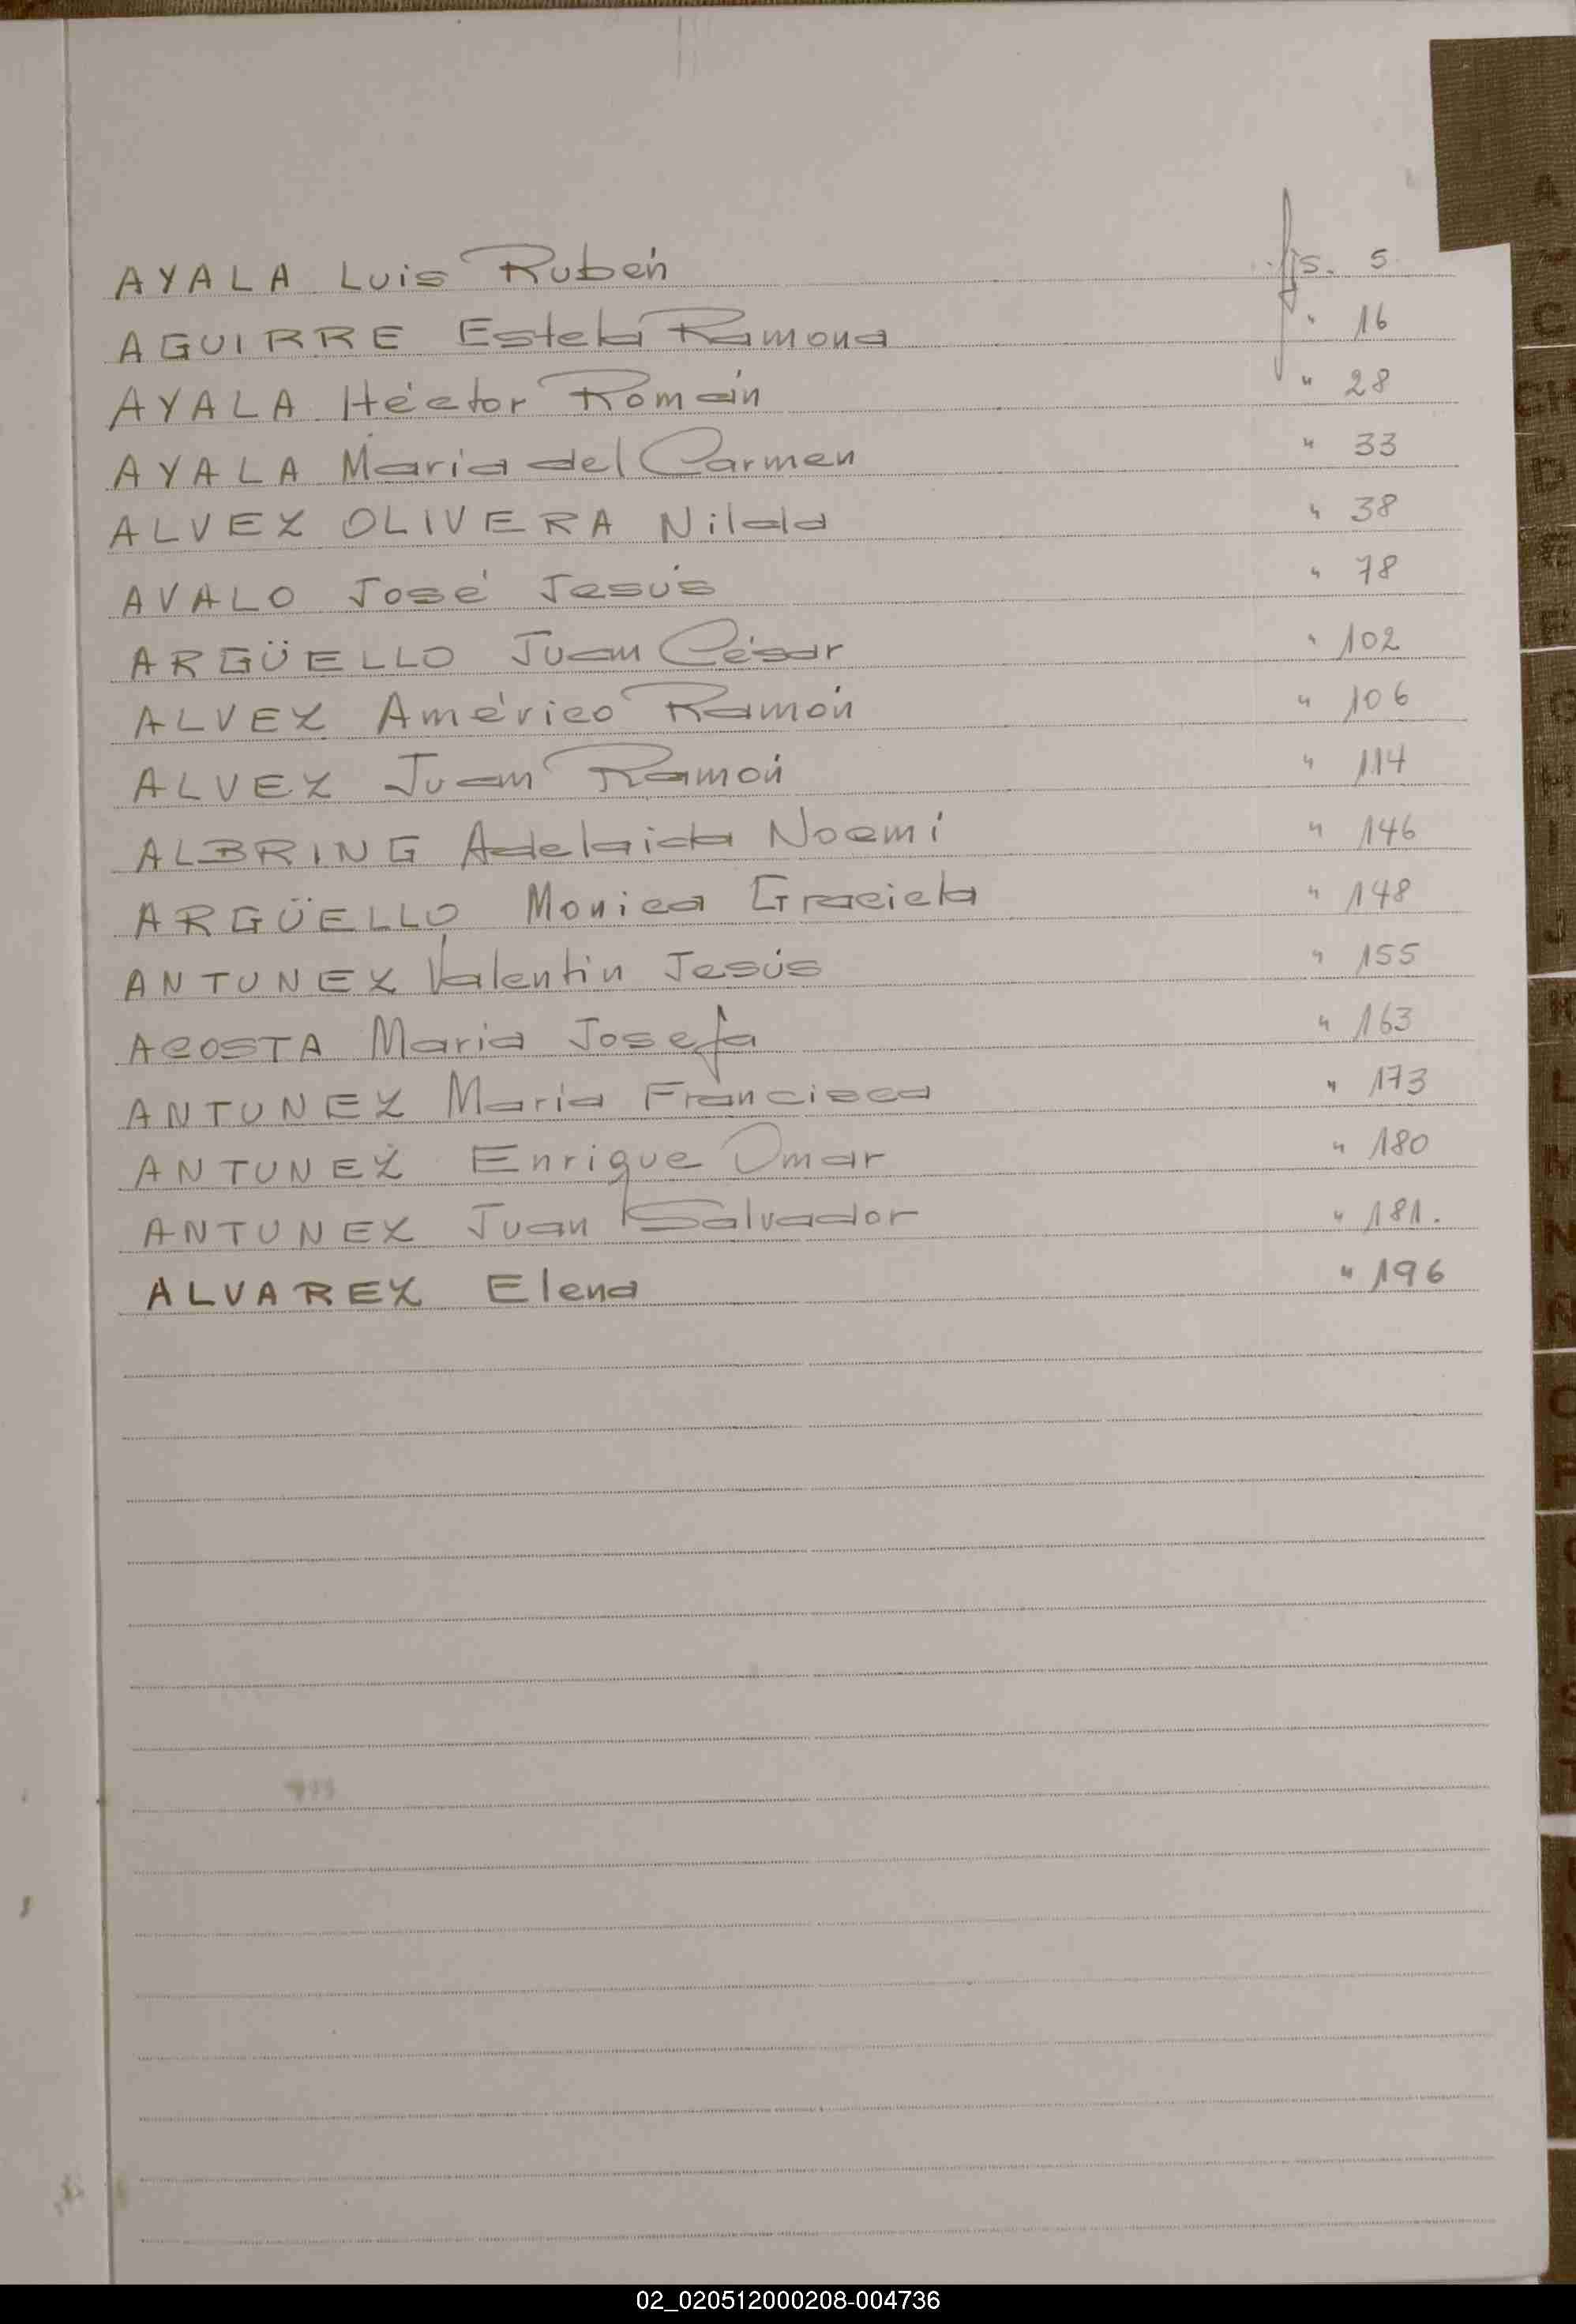 AYALA Luis Rubén fs. 5
AGUIRRE Estela Ramona " 16
AYALA Héctor Román " 28
AYALA María del Carmen " 33
ALVEZ OLIVERA Nilda " 38
AVALO José Jesús " 78
ARGÜELLO Juan César " 102
ALVEZ Américo Ramón " 106
ALVEZ Juan Ramón " 114
ALBRING Adelaida Noemí " 146
ARGÜELLO Monica Graciela " 148
ANTUNEZ Valentín Jesús " 155
ACOSTA María Josefa " 163
ANTUNEZ María Francisca " 173
ANTUNEZ Enrique Omar " 180
ANTUNEZ Juan Salvador " 181.
ALVAREZ Elena " 196
02_020512000208-004736